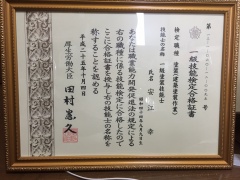 一級技能検定合格証書
検定職種 塗装(建築塗装作業)
技能士の名称 一級塗装技能士
氏名 安江幸
あなたは職業能力開発促進法の規定による
右の職種に係る技能検定に合格したので
ここに合格証書を授与し右の技能士の名称を
称することを認める
平成二十五年十月四日
厚生労働大臣 田村憲久